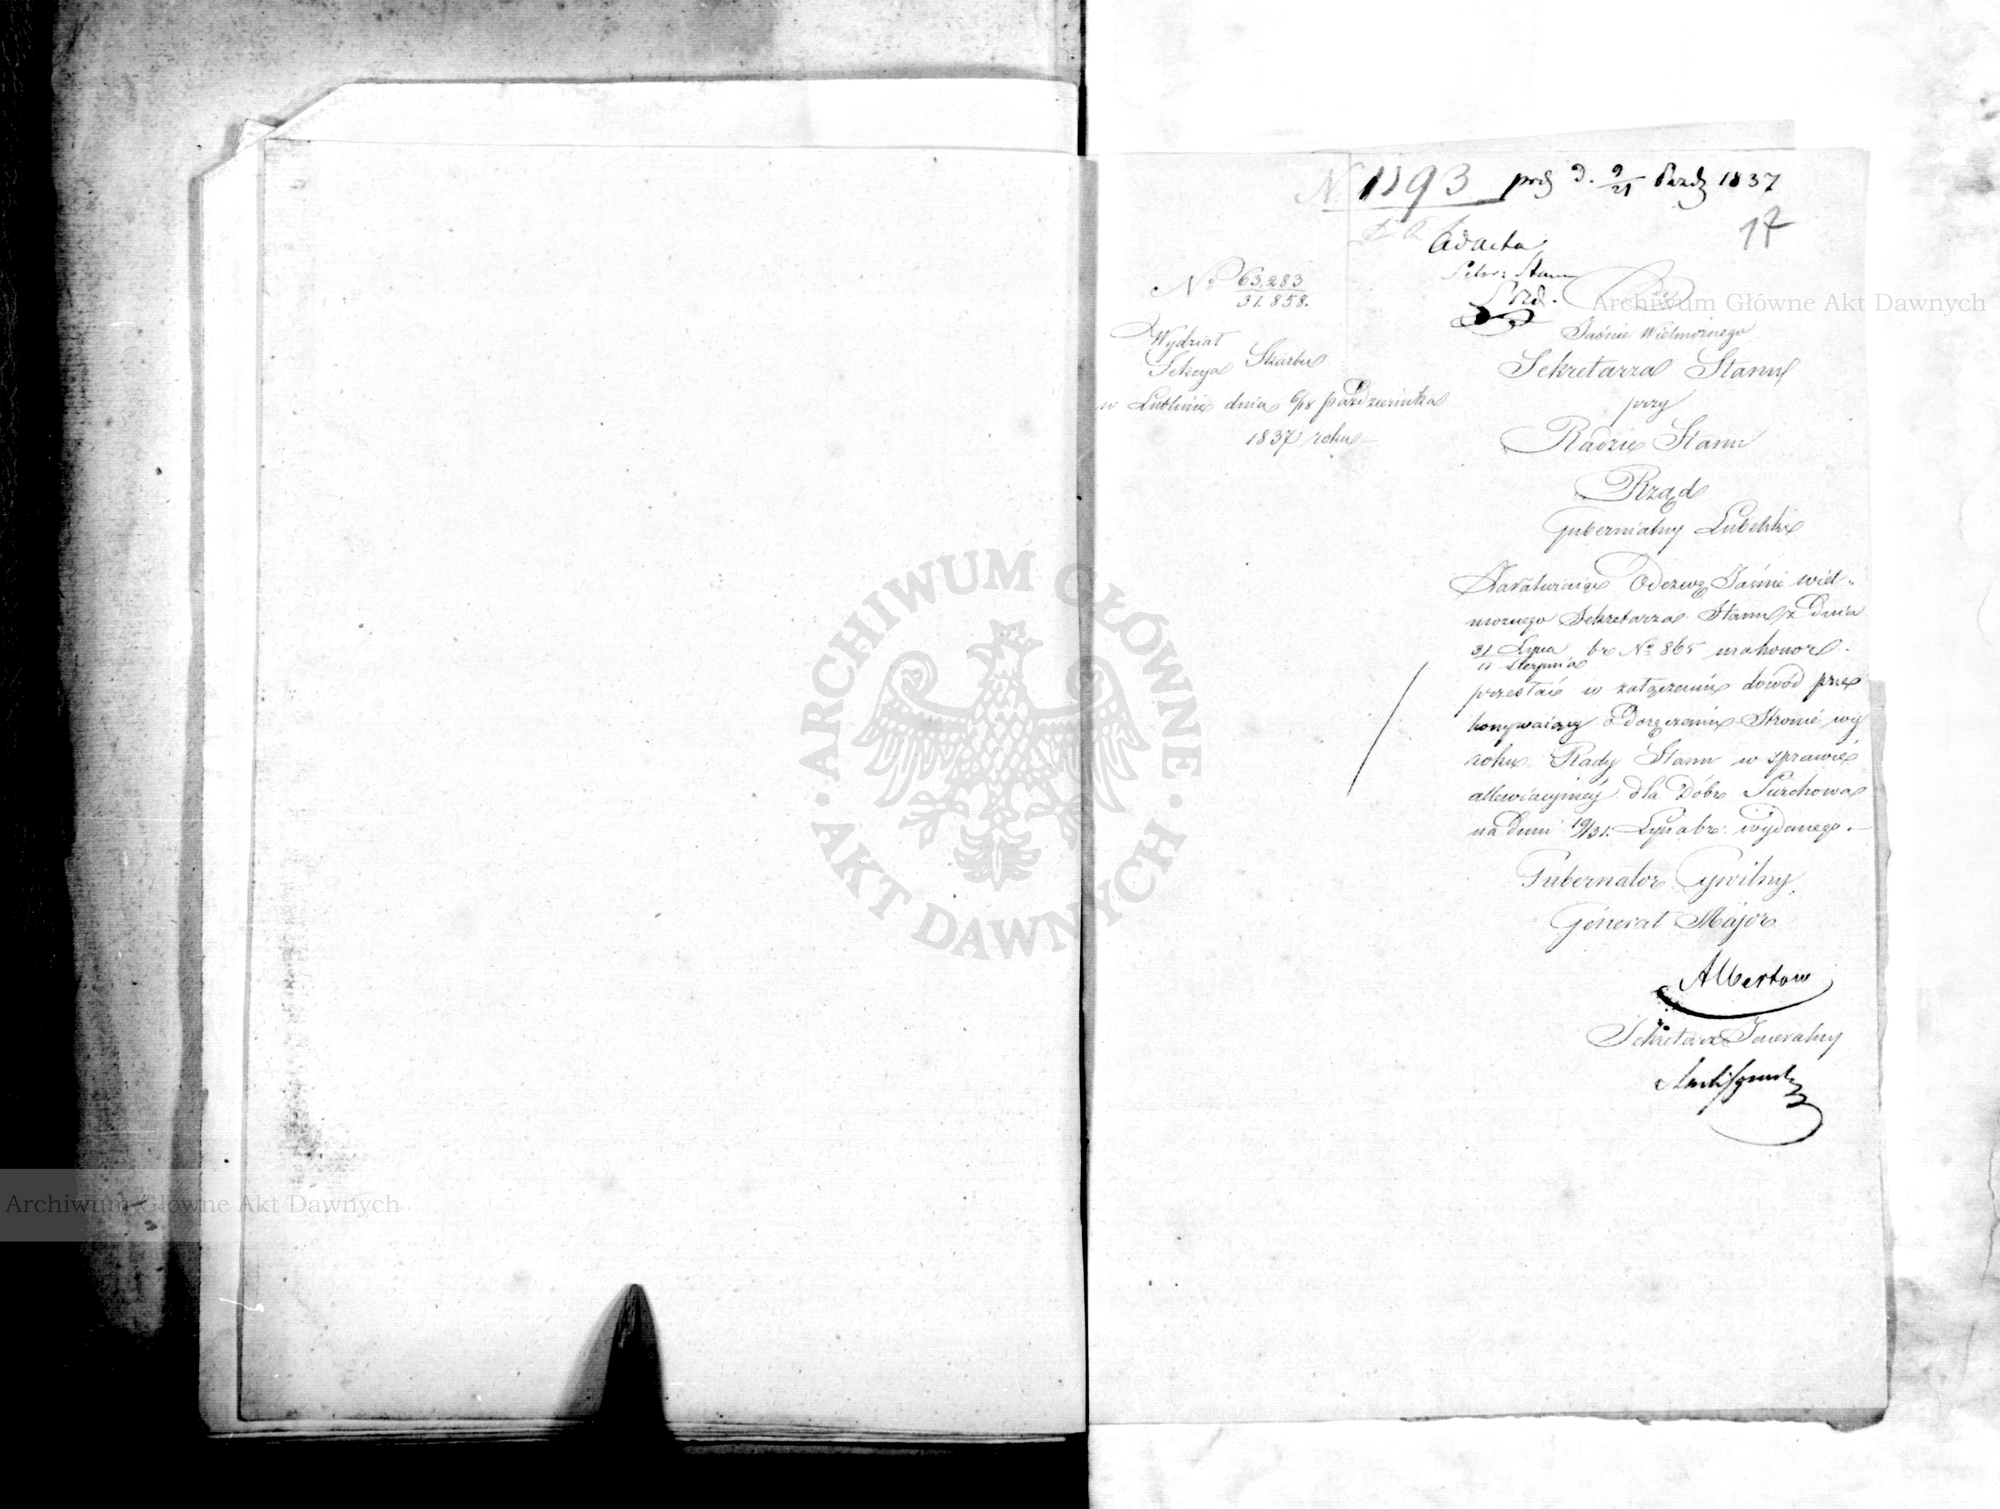 N. 1193 prd d. 9/21 Pazd 1837
17
Ad acta
Sekr: Stanu
No 63,283/31.858.
Wydział Skarbu
Sekcya
w Lublinie dnia 6/18 Października
1837 roku
Do
Jaśnie Wielmożnego
Sekretarza Stanu
przy
Radzie Stanu
Rząd
Gubernialny Lubelski
Odezwę Jaśnie Wiel-
możnego Sekretarza Stanu z dnia
31 Lipca / 11 Sierpnia br No 865 ma honor
przesłać w załączeniu dowód prze
konywaiący o doręczeniu Stronie wy
roku Rady Stanu w sprawie
allewiacyjney dla Dóbr Turchowa
na dniu 19/31 Lipca br: wydanego.
Gubernator Cywilny
Generał Major
Albertow
Sekretarz Jeneralny
ARCHIWUM GŁÓWNE AKT DAWNYCH
Archiwum Główne Akt Dawnych
Archiwum Główne Akt Dawnych